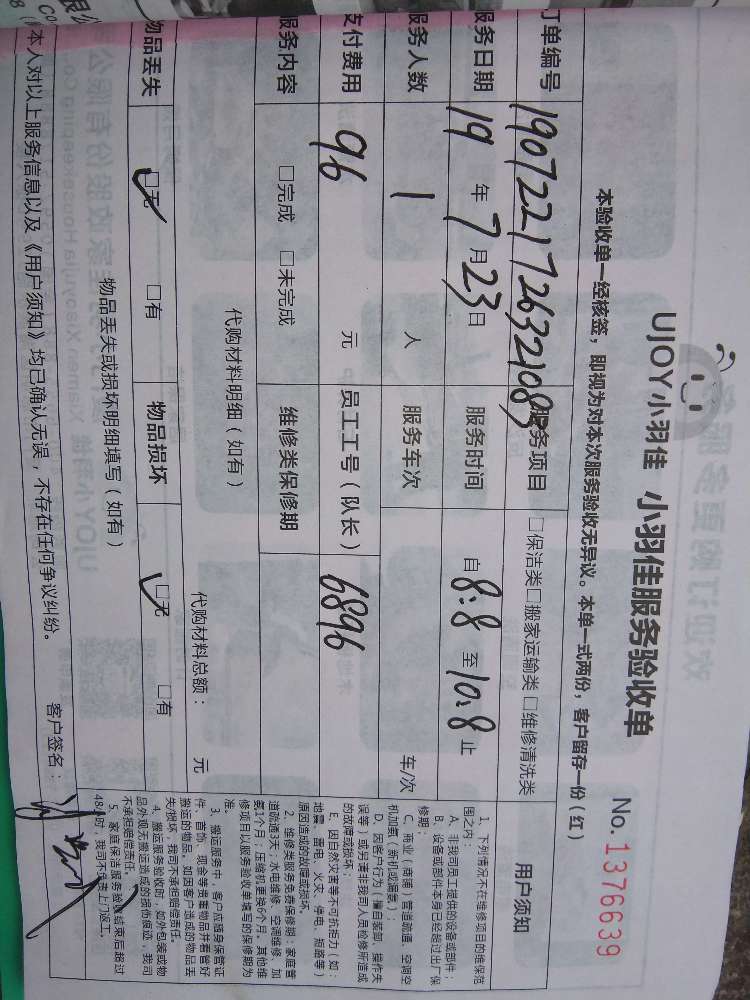 UJOY小羽佳 小羽佳服务验收单
No. 1376639
本验收单一经核签，即视为对本次服务验收无异议。本单一式两份，客户留存一份（红）
订单编号 服务项目 □保洁类□搬家运输类□维修清洗类
服务日期 19 年 7 月 23 日 服务时间 自 8:8 至 10:8 止
服务人数 1 人 服务车次 车/次
支付费用 96 元 员工工号（队长） 6896
服务内容 □完成 □未完成 维修类保修期
代购材料明细（如有） 代购材料总额： 元
物品丢失 □无 □有 物品损坏 □无 □有
物品丢失或损坏明细填写（如有）
本人对以上服务信息以及《用户须知》均已确认无误，不存在任何争议纠纷。 客户签名：
用户须知
1、下列情况不在维修项目的维保范
围之内：
A、非我司员工提供的设备或部件；
B、设备或部件本身已经超过出厂保
修期；
C、商业（商铺）管道疏通、空调空
机加氨（新机或漏氨）；
D、因客户行为（擅自装卸、操作失
误等）或另请非我司人员检修所造成
的故障或损坏；
E、因自然灾害等不可抗拒力（如：
地震、雷电、火灾、停电、短路等）
原因造成的故障或损坏。
2、维修类服务免费保修期：家庭管
道疏通3天；水电维修、空调维修、加
氨1个月；压缩机更换6个月。其他维
修项目以服务验收单填写的保修期为
准。
3、搬运服务中，客户应随身保管证
件、首饰、现金等贵重物品并看管好
搬运的物品。如因客户造成的物品丢
失/损坏，我司不承担赔偿责任。
4、搬运服务验收时，如外包装或物
品外观无搬运造成的损伤痕迹，我司
不承担赔偿责任。
5、家庭保洁服务验收结束后超过
48小时，我司不负责上门返工。